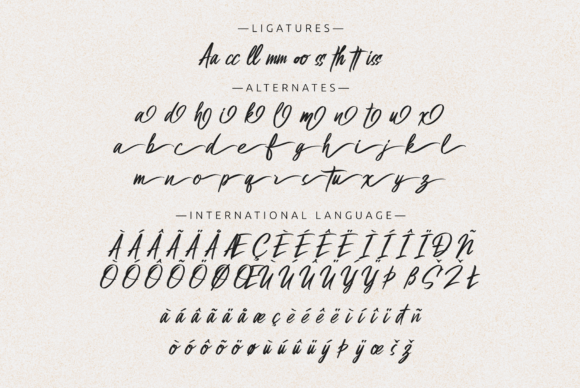 —LIGATURES—
Aa cc ll mm oo ss th tt iss
—ALTERNATES—
a d h i k l m n t u x
a b c d e f g h i j k l
m n o p q r s t u x y z
—INTERNATIONAL LANGUAGE—
À Á Â Ã Ä Å Æ Ç È É Ê Ë Ì Í Î Ï Ð Ñ
Ò Ó Ô Õ Ö Ø Œ Ù Ú Û Ü Ý Ÿ Þ ß Š Ž Ł
à á â ã ä å æ ç è é ê ë ì í î ï đ ñ
ò ó ô õ ö ø ù ú û ü ý þ ÿ œ š ž